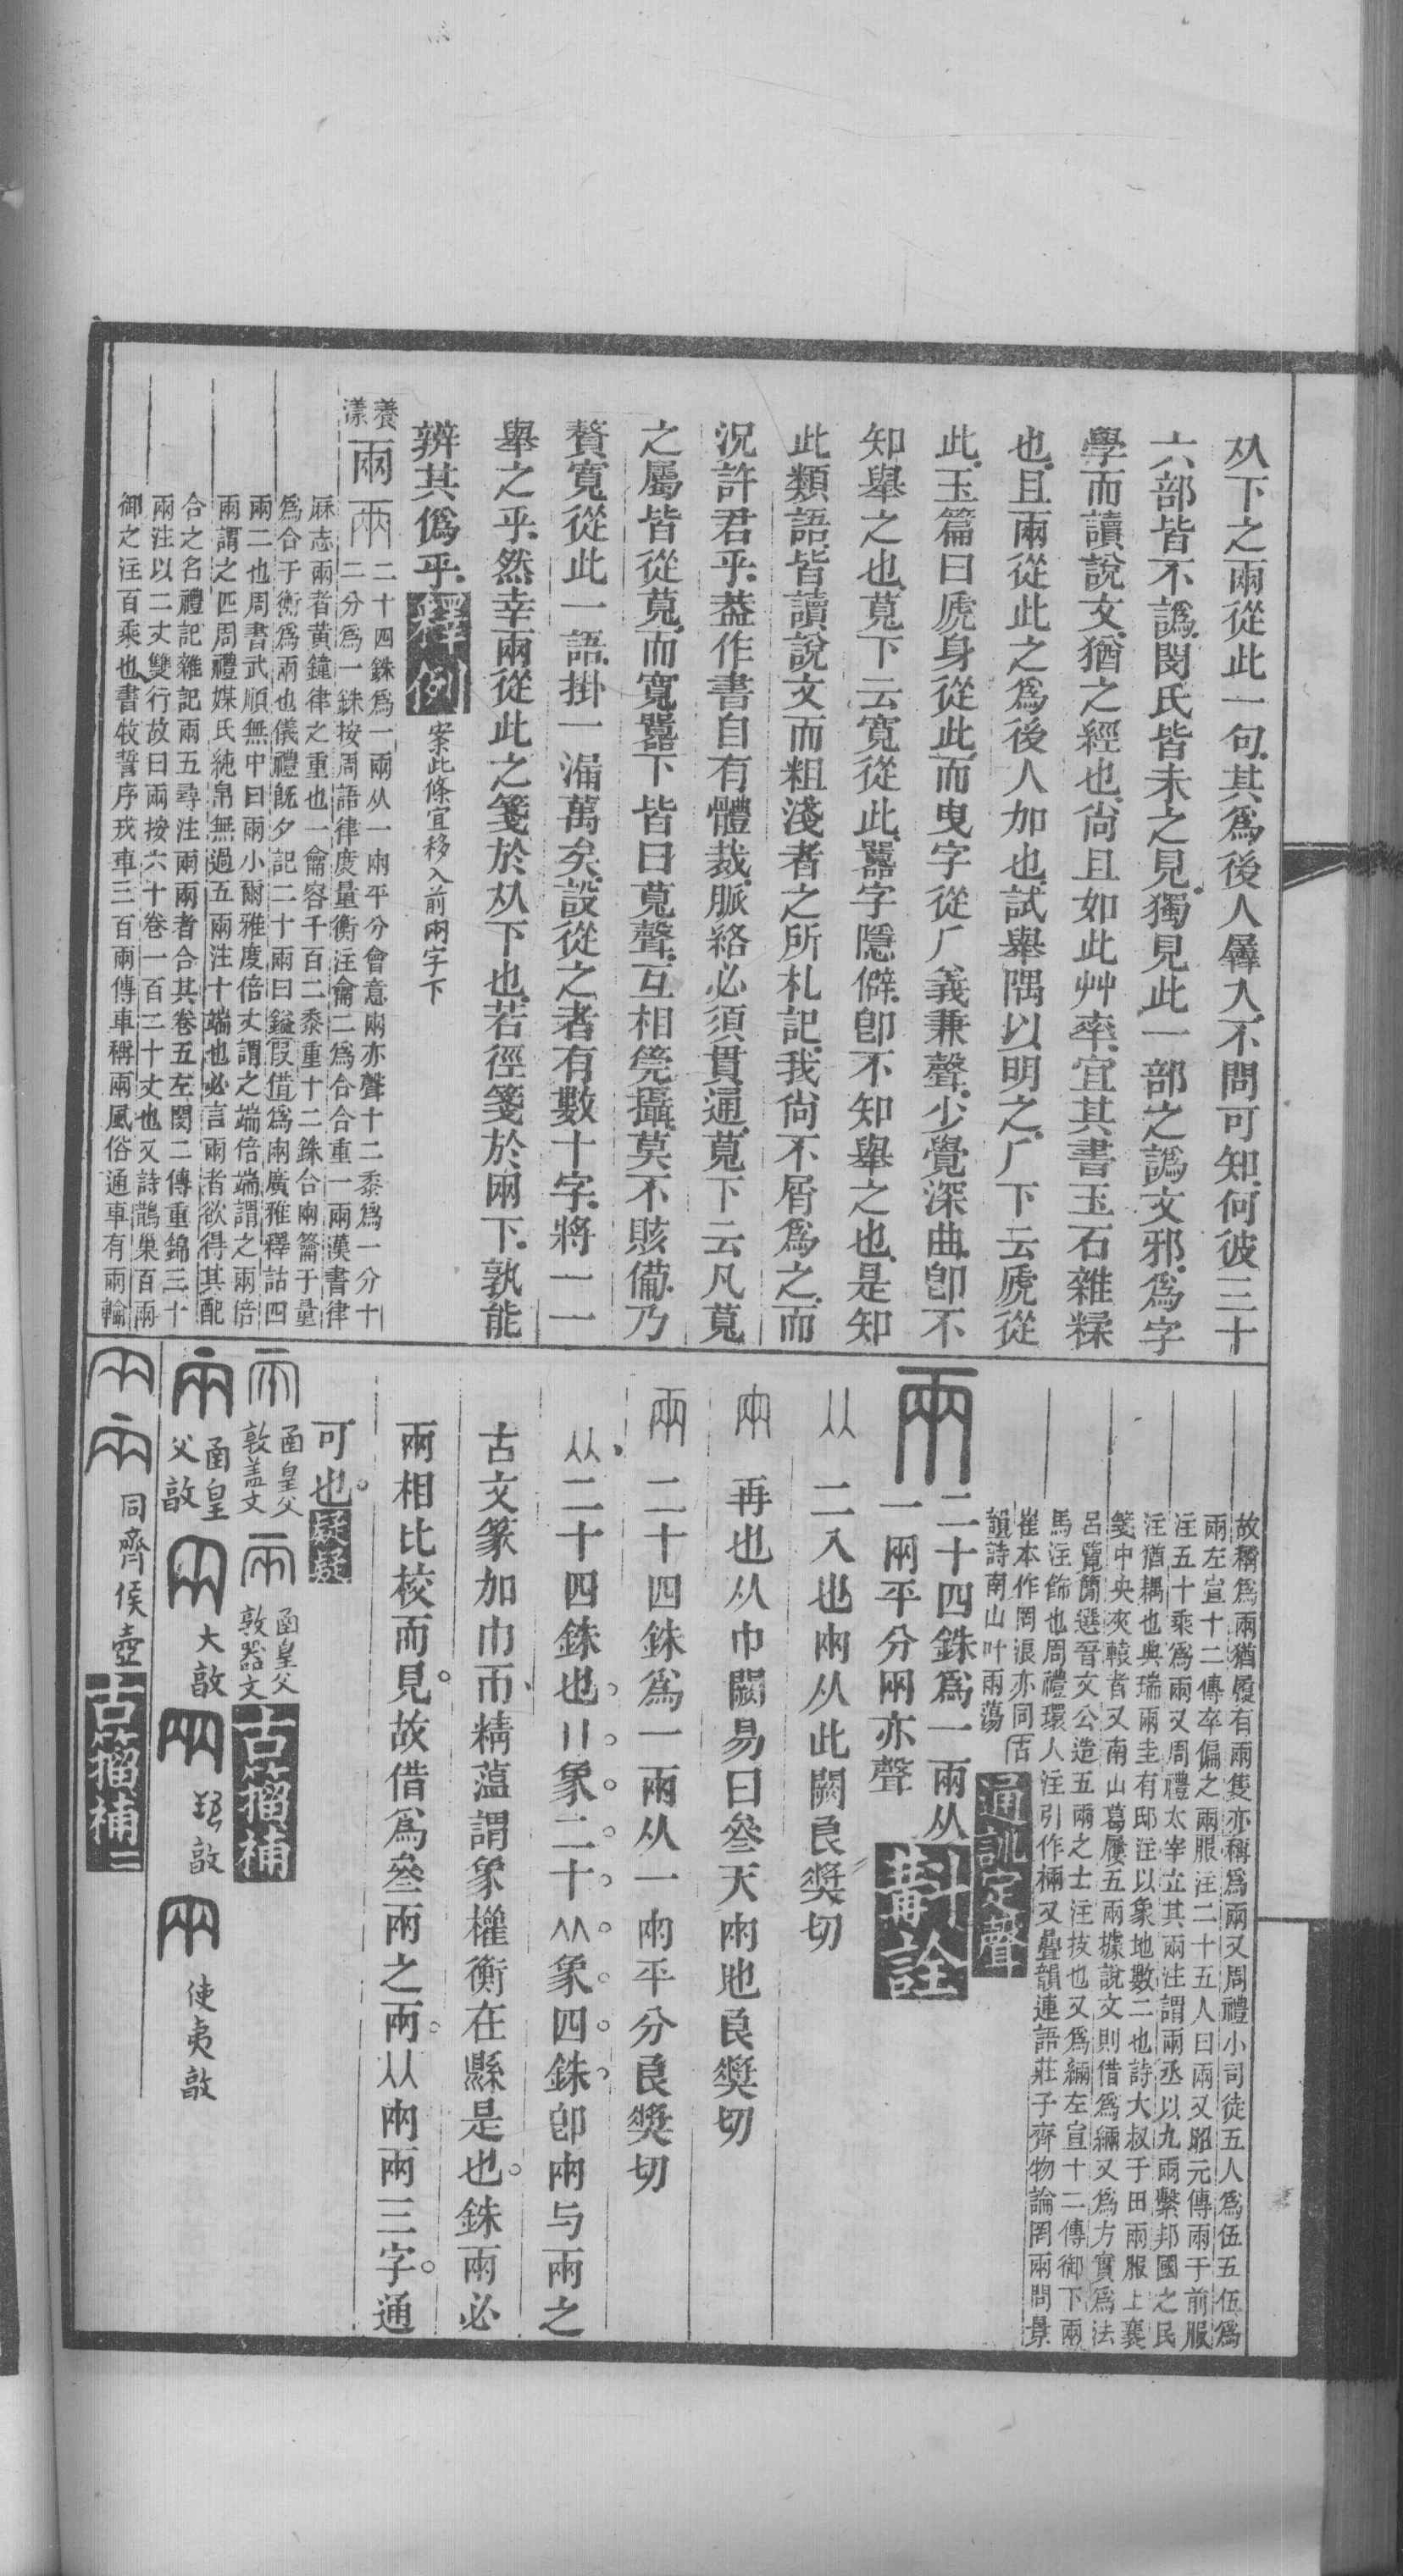 从下之㒳從此一句其爲後人羼入不問可知何彼三十
六部皆不譌閔氏皆未之見獨見此一部之譌文邪爲字
學而讀說文猶之經也尙且如此艸率宜其書玉石雜糅
也且㒳從此之爲後人加也試舉隅以明之厂下云虒從
此玉篇曰虒身從此而曳字從厂義兼聲少覺深曲卽不
知舉之也莧下云寬從此嚻字隱僻卽不知舉之也是知
此類語皆讀說文而粗淺者之所札記我尙不屑爲之而
況許君乎葢作書自有體裁脈絡必須貫通萈下云凡萈
之屬皆從萈而寬嚻下皆曰萈聲互相筦攝莫不賅備乃
贅寬從此一語掛一漏萬矣設從之者有數十字將一一
舉之乎然幸㒳從此之箋於从下也若徑箋於㒳下孰能
辨其僞乎釋例案此條宜移入前㒳字下
養漾
兩兩
二十四銖爲一兩从一㒳平分會意㒳亦聲十二黍爲一分十
二分爲一銖按周語律度量衡注龠二爲合合重一兩漢書律
厤志兩者黃鐘律之重也一龠容千百二黍重十二銖合兩籥于量
爲合于衡爲兩也儀禮旣夕記二十兩曰鎰叚借爲㒳廣雅釋詁四
兩二也周書武順無中曰兩小爾雅度倍丈謂之端倍端謂之兩倍
兩謂之匹周禮媒氏純帛無過五兩注十端也必言兩者欲得其配
合之名禮記雜記兩五尋注兩兩者合其卷五左閔二傳重錦三十
兩注以二丈雙行故曰兩按六十卷一百二十丈也又詩鵲巢百兩
御之注百乘也書牧誓序戎車三百兩傳車稱兩風俗通車有兩輪
故稱爲兩猶履有兩隻亦稱爲兩又周禮小司徒五人爲伍五伍爲
兩左宣十二傳卒偏之兩服注二十五人曰兩又昭元傳兩于前服
注五十乘爲兩又周禮太宰立其兩注謂兩丞以九兩繫邦國之民
注猶耦也典瑞兩圭有邸注以象地數二也詩大叔于田兩服上襄
箋中央夾轅者又南山葛屨五兩據說文則借爲緉又爲方實爲法
呂覽簡選晉文公造五兩之士注技也又爲緉左宣十二傳御下兩
馬注飾也周禮環人注引作㮹又疊韻連語莊子齊物論罔兩問景
崔本作罔浪亦同古
韻詩南山叶兩蕩
通訓定聲
兩
二十四銖爲一兩从
一㒳平分㒳亦聲
斠詮
从 二入也㒳从此闕良奬切
㒳 再也从巾闕易曰叄天㒳地良奬切
兩 二十四銖爲一兩从一㒳平分良奬切
从二十四銖也〢象二十从从象四銖卽㒳与兩之
古文篆加巾帀精薀謂象權衡在縣是也銖兩必
兩相比校而見故借爲叄兩之兩从㒳兩三字通
可也疑疑
函皇父敦蓋文
函皇父敦器文
古籀補
函皇父敦
大敦
敦
使夷敦
同齊侯壺
古籀補二